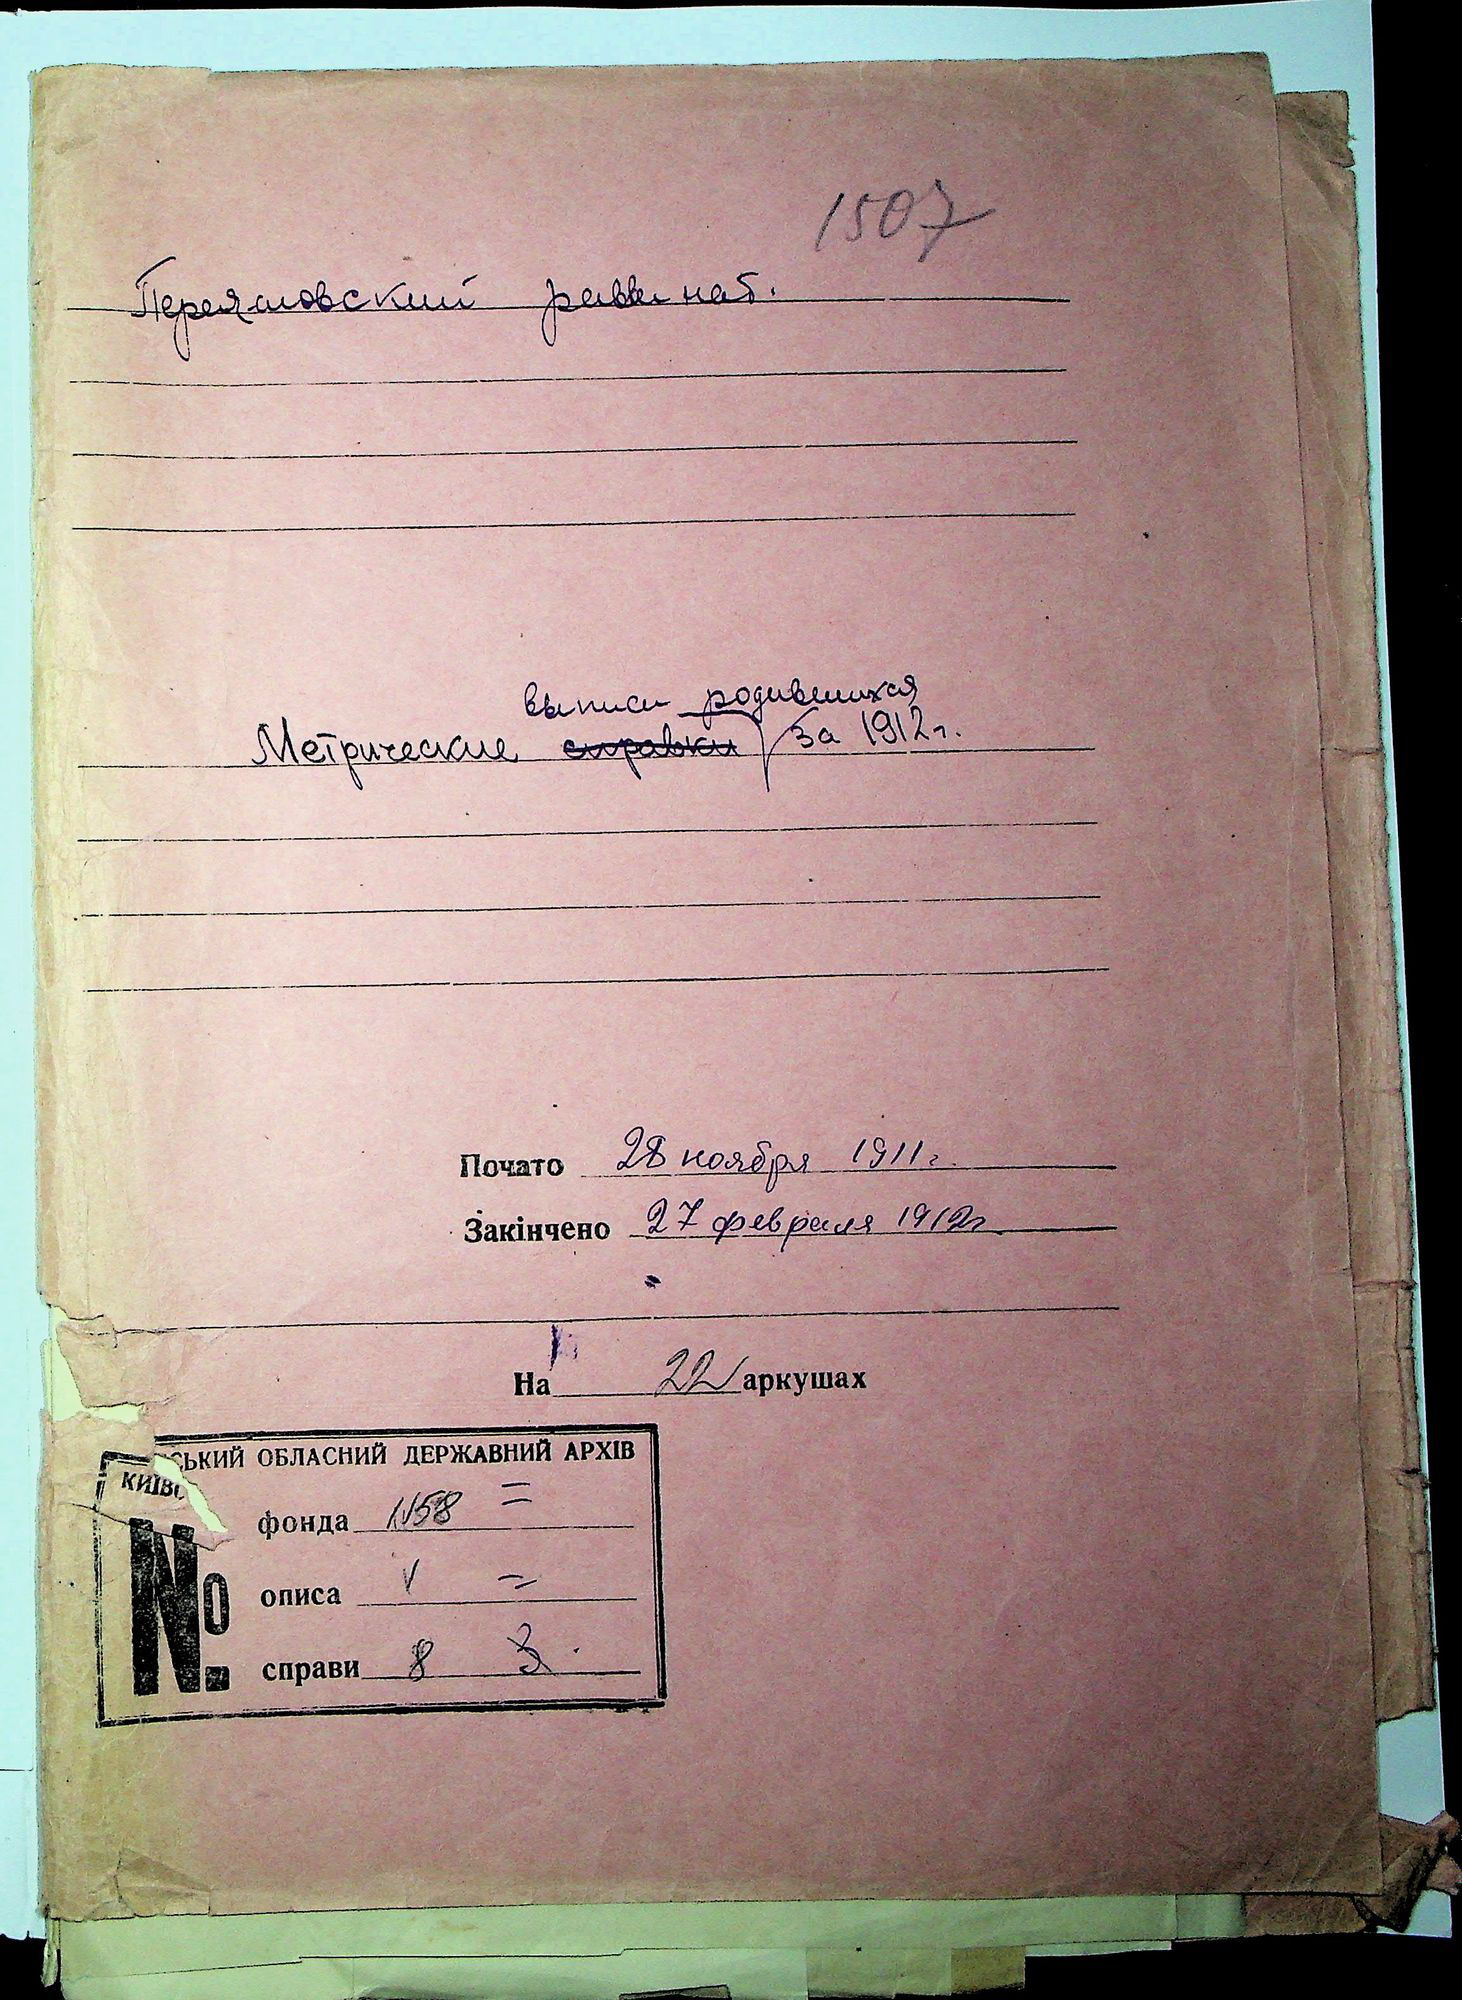 1507
Переяславский раввинат.
выписи родившихся
Метрические справки за 1912 г.
Почато 28 ноября 1911 г.
Закінчено 27 февраля 1912 г.
На 22 аркушах
КИЇВСЬКИЙ ОБЛАСНИЙ ДЕРЖАВНИЙ АРХІВ
№ фонда 1158 =
описа 1 =
справи 8 3